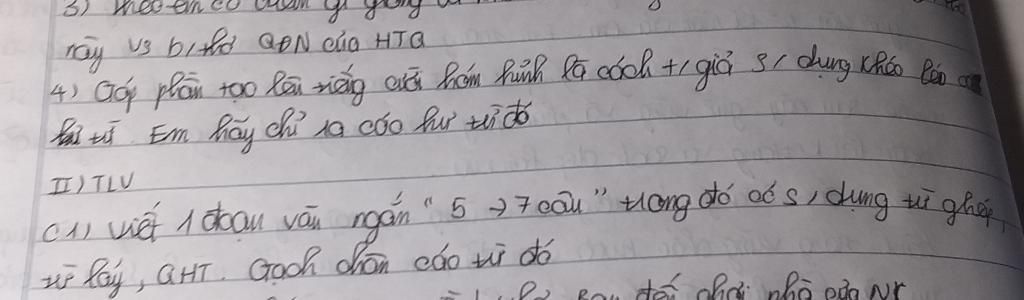 3) Theo em có
này vs b/thơ QĐN của HTQ
4) Góp phần tạo lên tiếng cười hóm hỉnh là cách t/giả s/dụng khéo léo các
hư từ. Em hãy chỉ ra các hư từ đó
II) TLV
C1) Viết 1 đoạn văn ngắn "5 → 7 câu" trong đó có s/dụng từ ghép,
từ láy, QHT. Gạch chân các từ đó